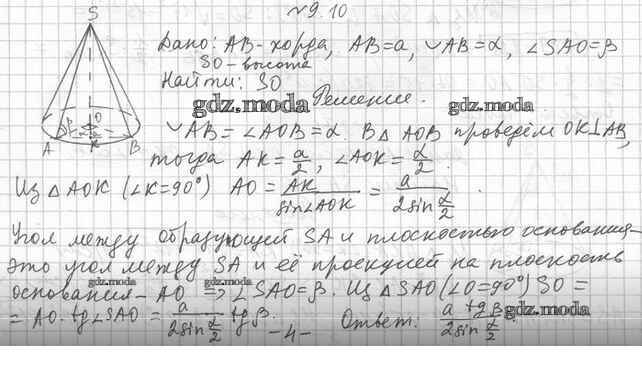 №9.10
S
Дано: AB-хорда, AB=a, ◡AB=α, ∠SAO=β
SO-высота
Найти: SO
gdz.moda Решение. gdz.moda
◡AB=∠AOB=α. В △AOB проведём OK⊥AB,
тогда AK=a/2, ∠AOK=α/2.
O
β
A K B
Из △AOK (∠K=90°) AO = AK/sin∠AOK = a/(2sin α/2).
Угол между образующей SA и плоскостью основания-
это угол между SA и её проекцией на плоскость
gdz.moda gdz.moda
основания-AO ⇒ ∠SAO=β. Из △SAO (∠O=90°) SO =
gdz.moda
= AO·tg∠SAO = a/(2sin α/2) tg β. Ответ: a tg β/(2sin α/2).
-4-